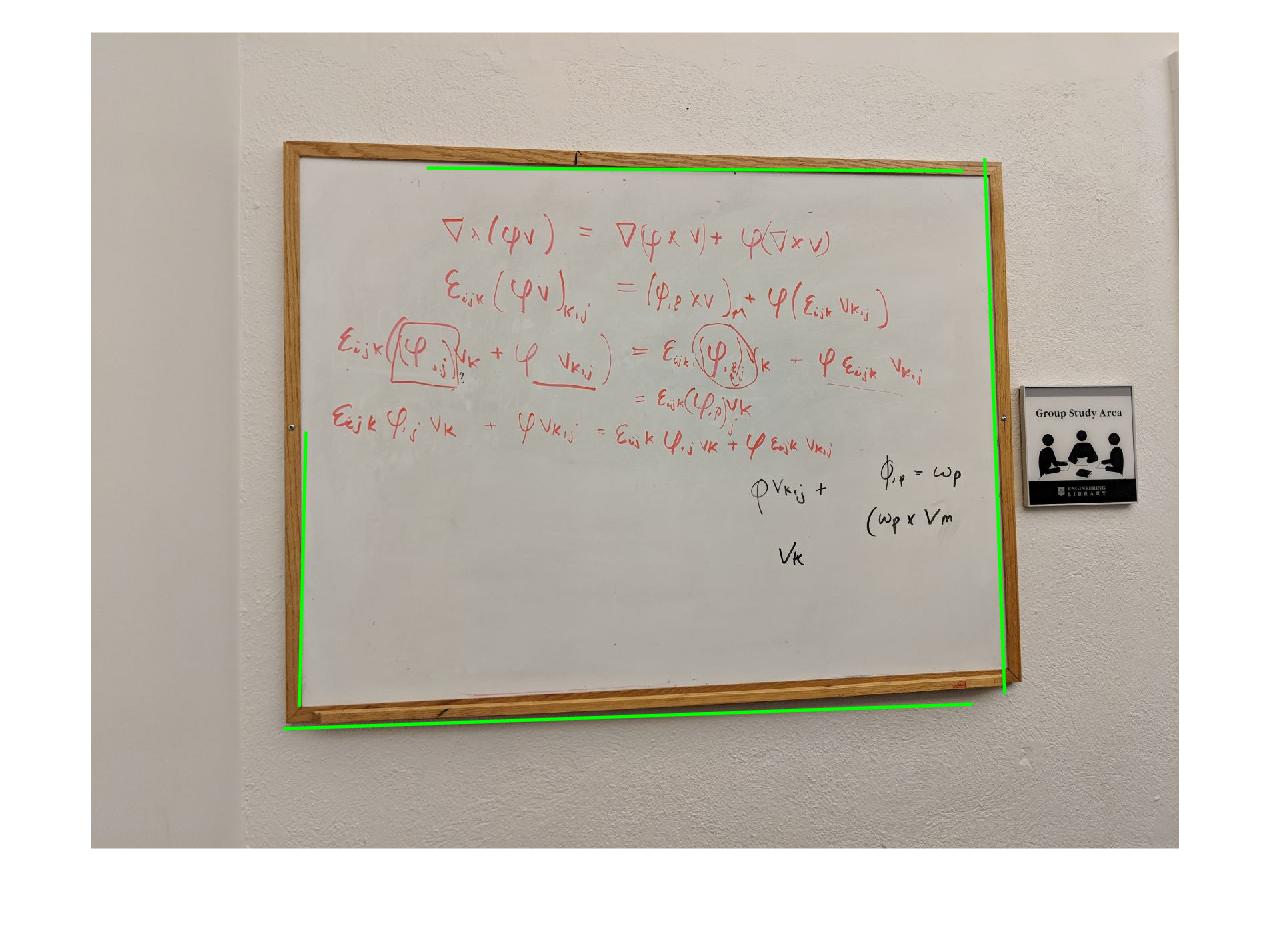 ∇ × (φv) = ∇(φ × v) + φ(∇ × v)
ε_ijk (φv)_k,j = (φ,ₚ × v)_m + φ(ε_ijk v_k,j)
ε_ijk((φ,j)v_k + φ v_k,j) = ε_ijk (φ,j) v_k - φ ε_ijk v_k,j
?
= ε_ijk(φ,p)_j v_k
ε_ijk φ,j v_k + φ v_k,j = ε_ijk φ,j v_k + φ ε_ijk v_k,j
φ v_k,j +
φ,p = ω_p
(ω_p × V_m
V_k
Group Study Area
ENGINEERING
LIBRARY